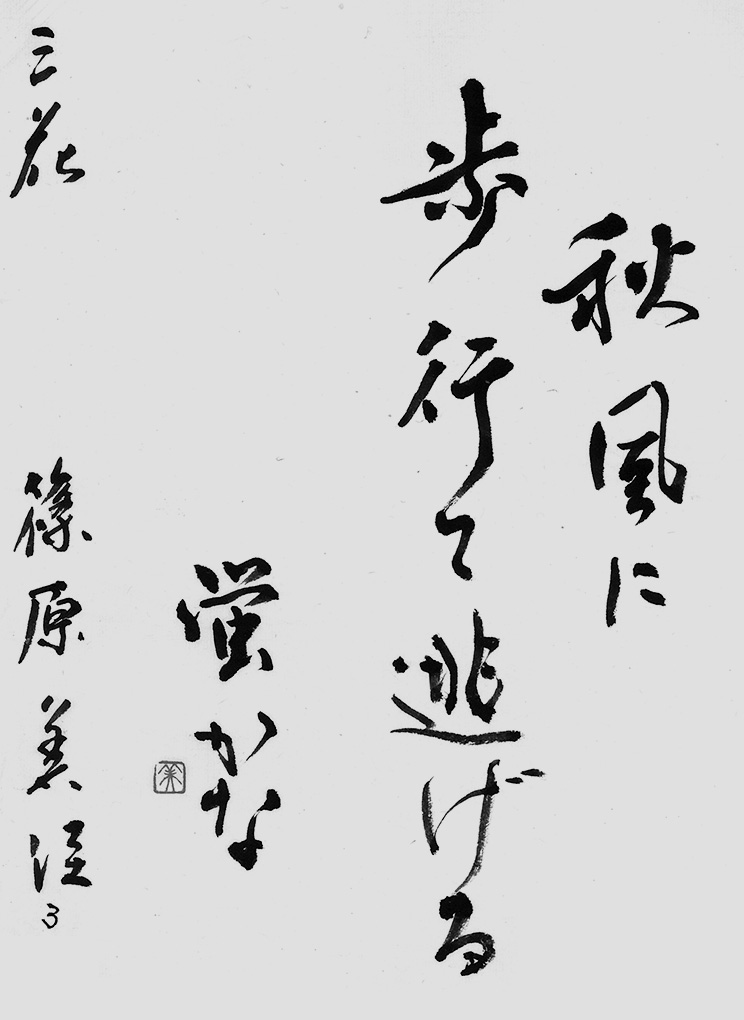 秋風に
歩行て逃げる
蛍かな
三花
篠原美